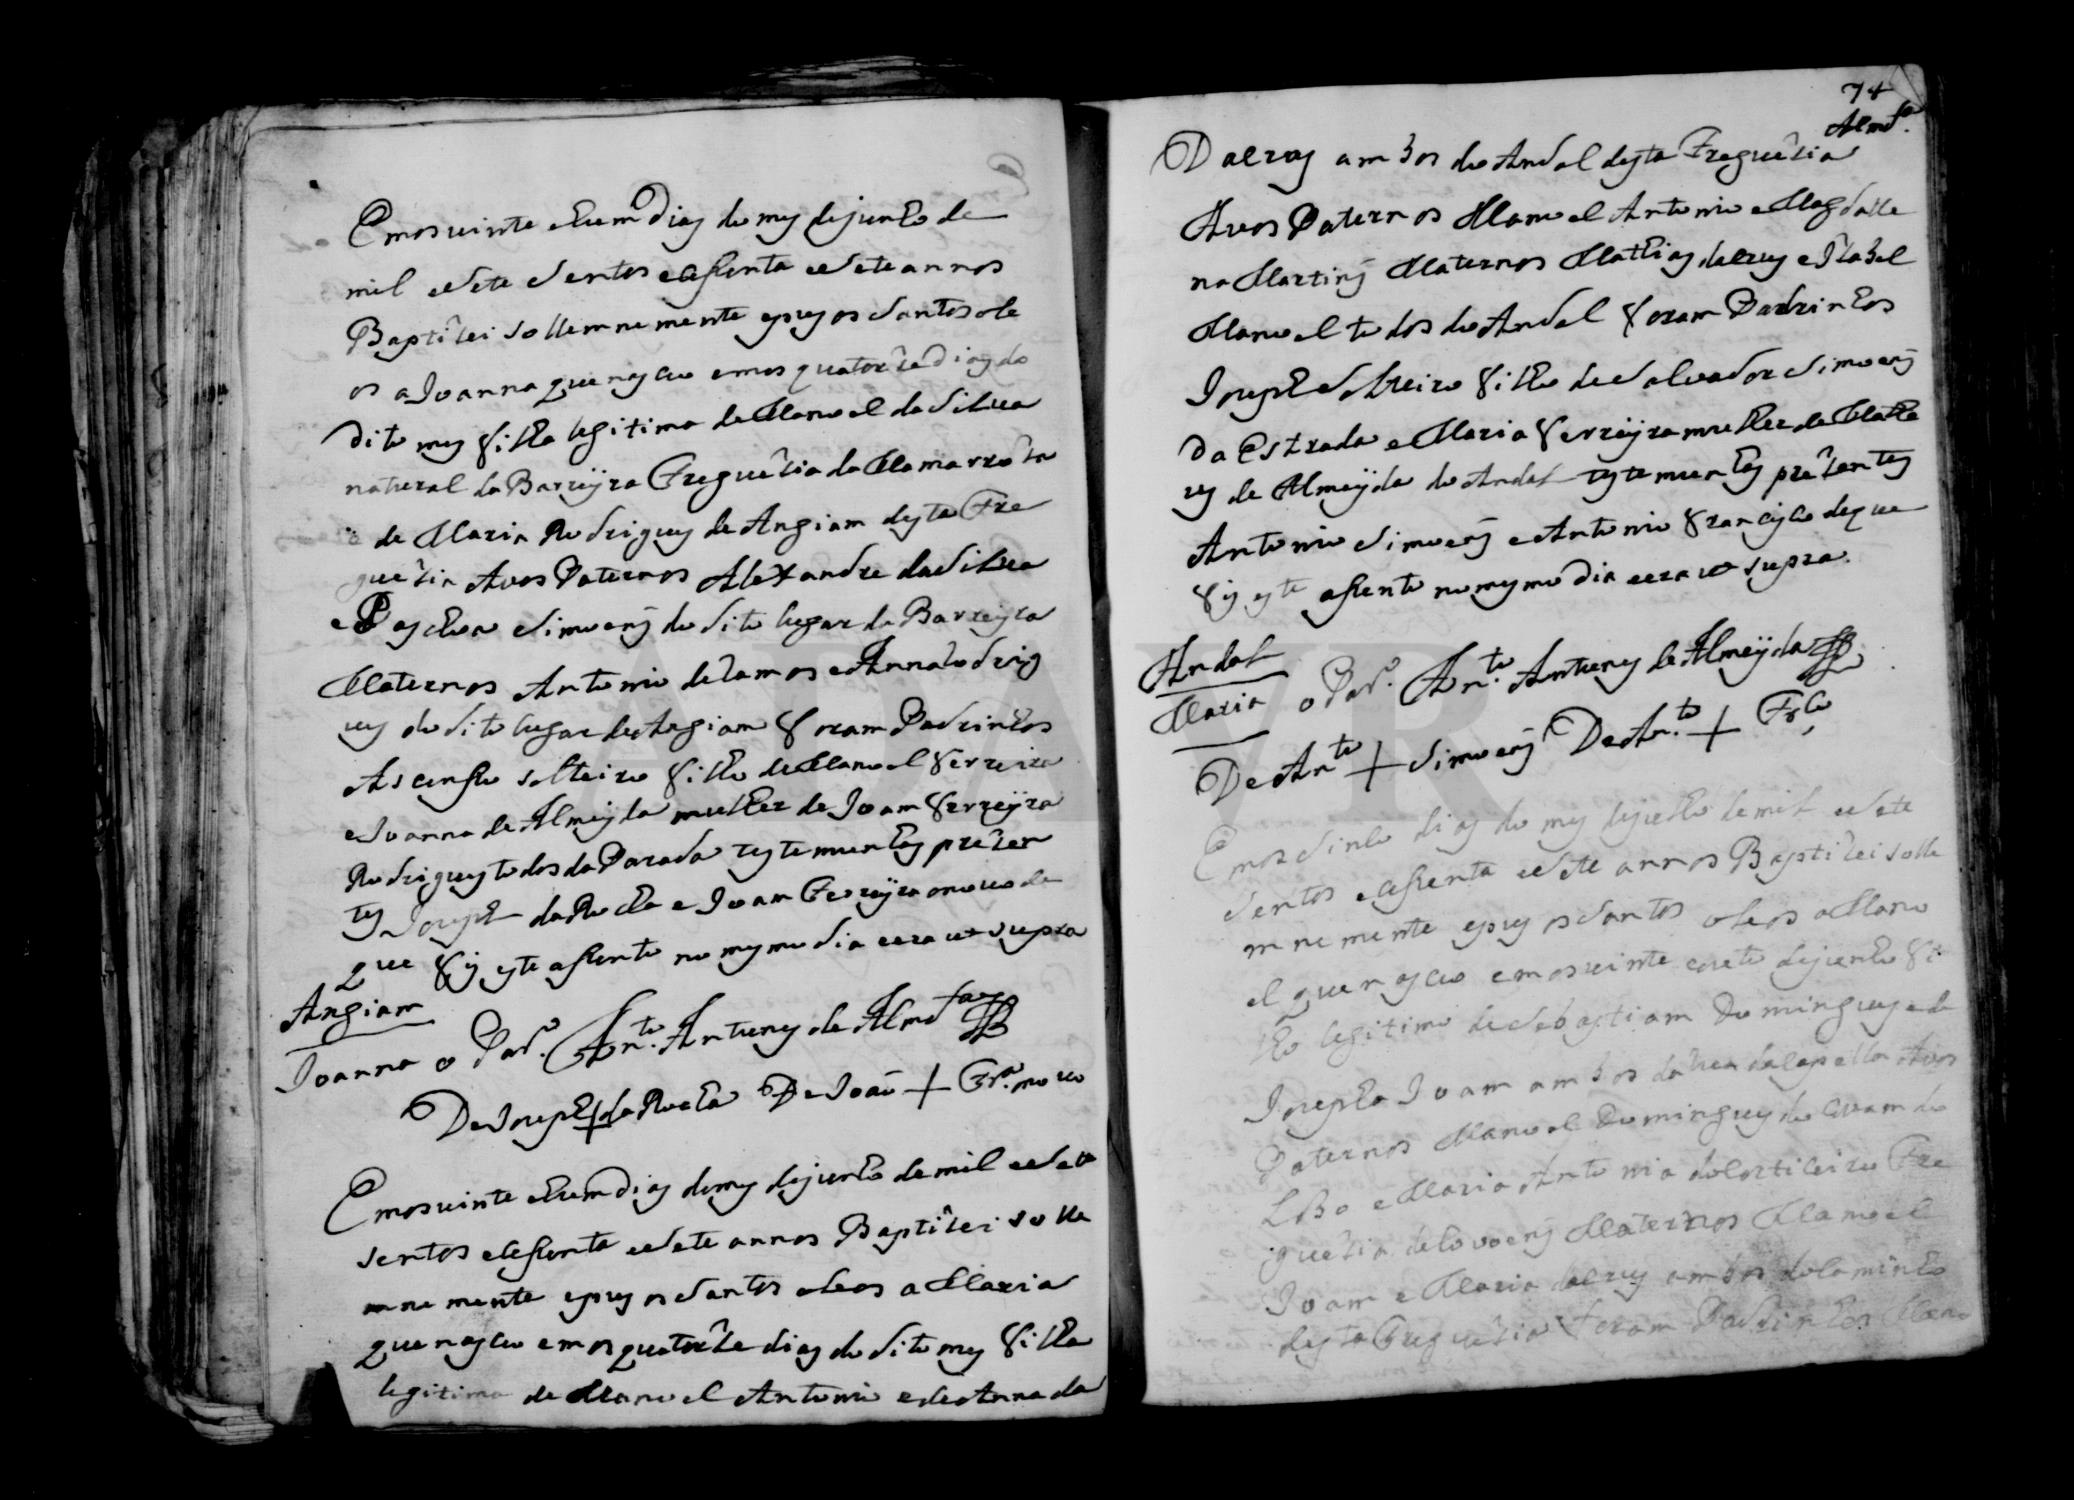 Em os vinte e hum Dias do mes de junho de
mil e sete sentos e cessenta e sete annos
Baptizei sollemnemente e pus os santos ole
os a Joanna que nasceo em os quatorze Dias do
dito mes filha legitima de Manoel da Silva
natural da Barreyra Freguezia da Mamarroza
e de Maria Rodrigues de Angiam desta Fre
guezia Avos Paternos Alexandre da Silva
e Paschoa Simoens do dito lugar da Barreyra
Maternos Antonio de Ramos e Anna Rodrig
ues do dito lugar de Angiam foram Padrinhos
Ascenso solteiro filho de Manoel Ferreira
e Joanna de Almeyda mulher de Joam Ferreyra
Rodrigues todos da Parada testemunhas prezen
tes Joseph da Rocha e Joam Ferreyra o novo de
que fis este assento no mesmo dia e era ut supra
Angiam
Joanna o Par.º An.to Antunes de Almdª
De Joseph + da Rocha De Joaõ + Frª novo
Em os vinte e hum Dias do mes de junho de mil e sete
sentos e cessenta e sete annos Baptizei solle
mnemente e pus os santos oleos a Maria
que nasceo em os quatorze dias do dito mes filha
legitima de Manoel Antonio e de Anna da
74
Almdª.
Dalrus ambos do Andal desta Freguezia
Avos Paternos Manoel Antonio e Magdalle
na Martins Maternos Mathias dalrus e Izabel
Manoel todos do Andal foram Padrinhos
Joseph solteiro filho de Salvador Simoens
da Estrada e Maria Ferreyra mulher de Mathe
us de Almeyda do Andal testemunhas prezentes
Antonio Simoens e Antonio Francisco de que
fis este assento no mesmo dia e era ut supra.
Andal
Maria o Par.º An.to Antunes de Almeyda
De An.to + Simoens De An.to + Fr.co
Em os sinco dias do mes de julho de mil e sete
sentos e cessenta e sete annos Baptizei solle
mnemente e pus os santos oleos a Mano
el que nasceo em os vinte e sete de junho fi
lho legitimo de Sebastiam Domingues e de
Josepha Joam ambos da da capella Avos
Paternos Manoel Domingues do Covam do
Lobo e Maria Antonia do Corticeiro Fre
guezia de Covoens Maternos Manoel
Joam e Maria dalrus ambos do
desta Freguezia foram Padrinhos Mano